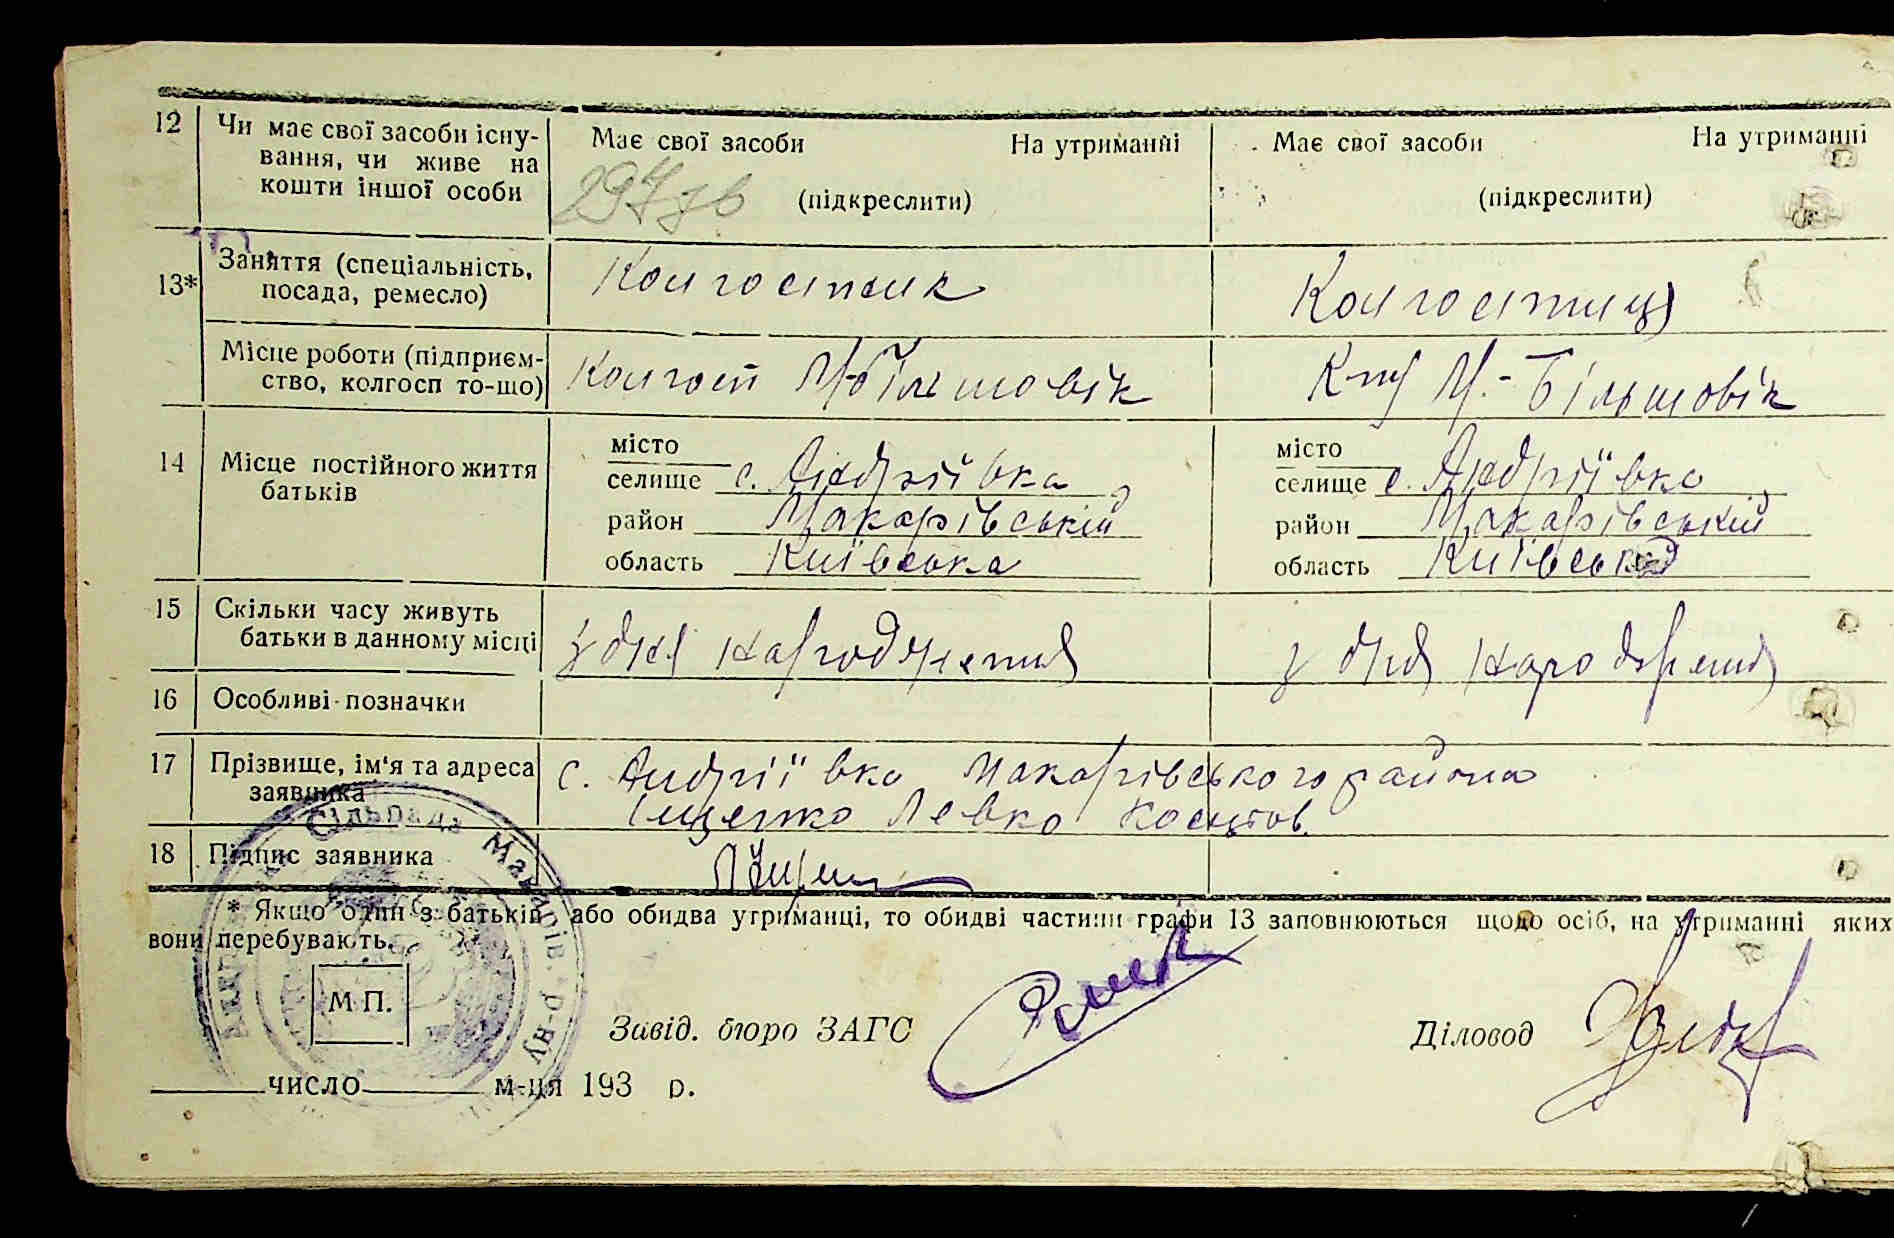 12 Чи має свої засоби існування, чи живе на кошти іншої особи
Має свої засоби На утриманні
(підкреслити)
Має свої засоби На утриманні
(підкреслити)
13* Заняття (спеціальність, посада, ремесло)
Колгоспник
Колгоспниця
Місце роботи (підприємство, колгосп то-що)
Колгосп Більшовік
Більшовік
14 Місце постійного життя батьків
місто
селище с. Андріївка
район Макарівський
область Київська
місто
селище с. Андріївка
район Макарівський
область Київська
15 Скільки часу живуть батьки в данному місці
з дня народження
з дня народження
16 Особливі позначки
17 Прізвище, ім'я та адреса заявника
с. Андріївка Макарівського района
Іщенко Левко
18 Підпис заявника
* Якщо один з батьків або обидва утриманці, то обидві частини графи 13 заповнюються щодо осіб, на утриманні яких
вони перебувають.
М.П.
Сільрада Макарів. р-ну
Завід. бюро ЗАГС
Діловод
число м-ця 193 р.